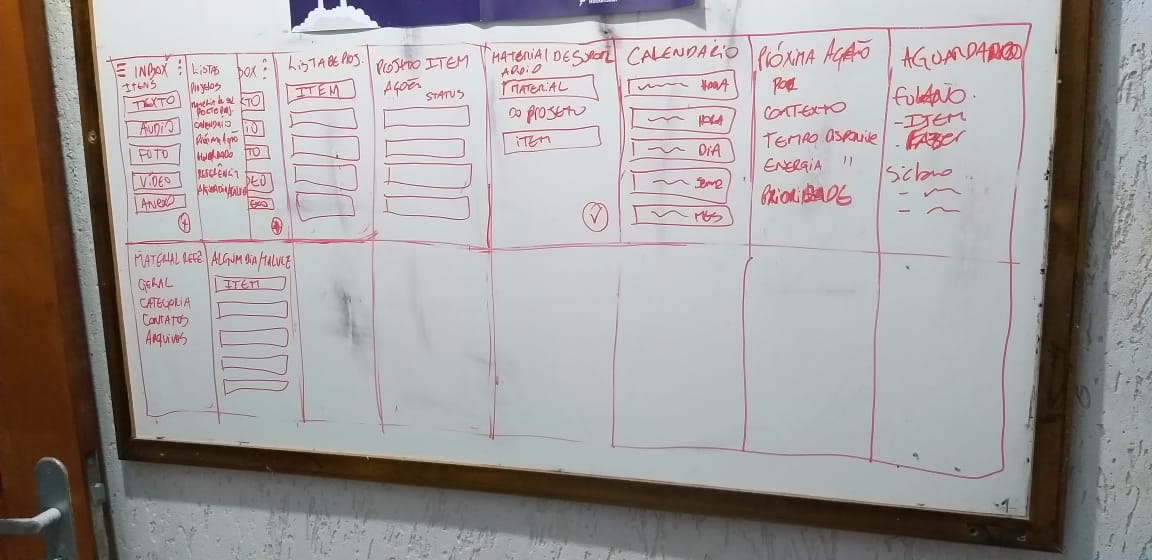 INBOX
ITENS
TEXTO
AUDIO
FOTO
VÍDEO
ANEXO
LISTAS
PROJETOS
CALENDARIO
PRÓXIMA AÇÃO
AGUARDANDO
REFERÊNCIA
ALGUM DIA/TALVEZ
BOX
XTO
IO
TO
DEO
EXO
LISTA DE PROJ.
ITEM
PROJETO ITEM
AÇÕES
STATUS
MATERIAL DE SUPOR
APOIO
MATERIAL
DO PROJETO
ITEM
CALENDÁRIO
HORA
HORA
DIA
SEMA
MES
PRÓXIMA AÇÃO
POR
CONTEXTO
TEMPO DISPONIVE
ENERGIA "
PRIORIDADE
AGUARDANDO
FULANO
- ITEM
- FAZER
SICLANO
MATERIAL REFE
GERAL
CATEGORIA
CONTATOS
ARQUIVOS
ALGUM DIA/TALVEZ
ITEM